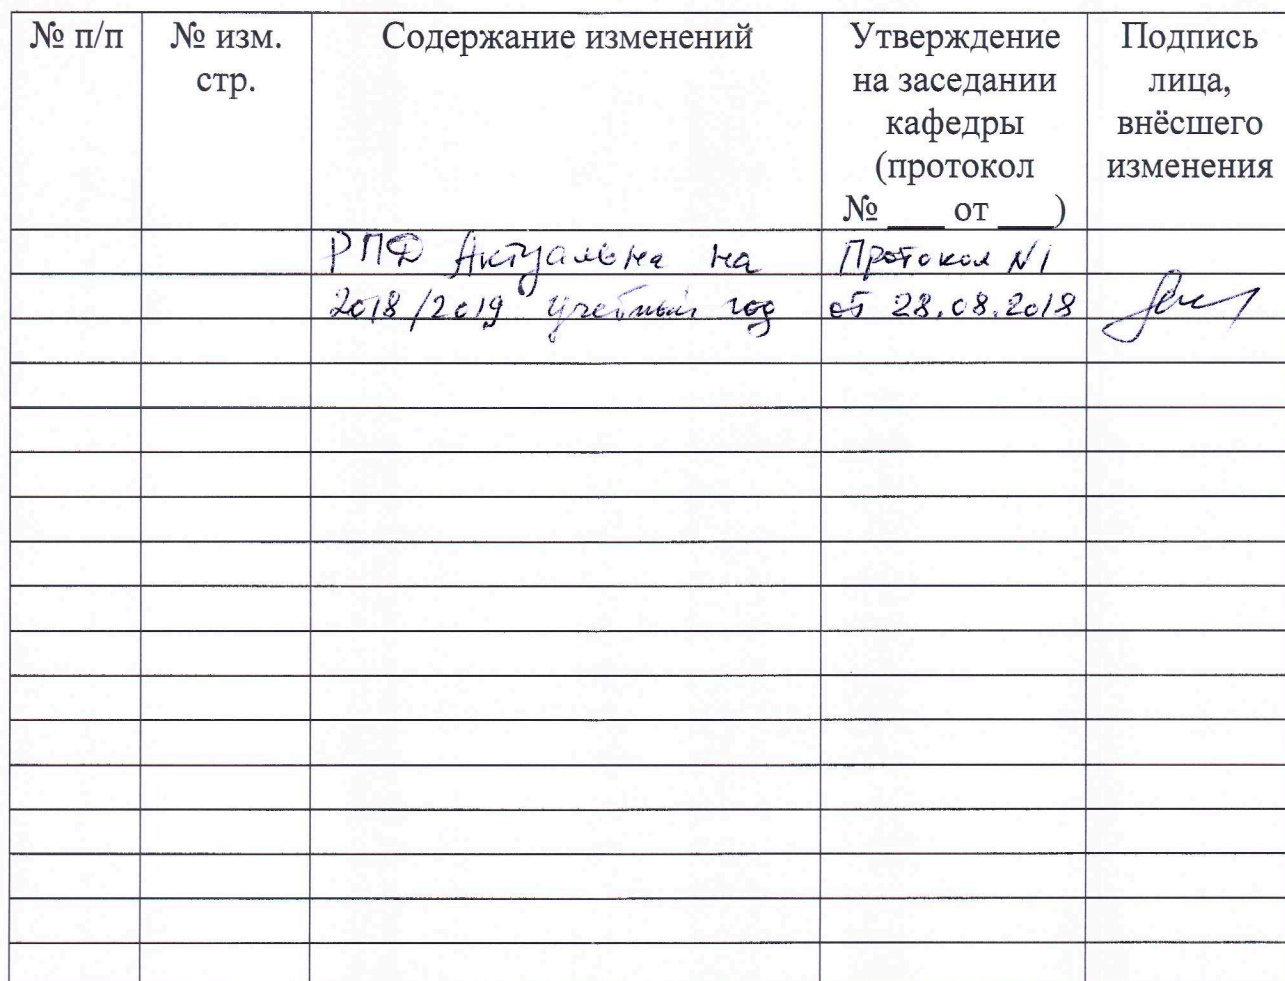 № п/п
№ изм.
стр.
Содержание изменений
Утверждение
на заседании
кафедры
(протокол
№ ____ от ____)
Подпись
лица,
внёсшего
изменения
РПД Актуальна на
2018/2019 учебный год
Протокол N1
от 28.08.2018